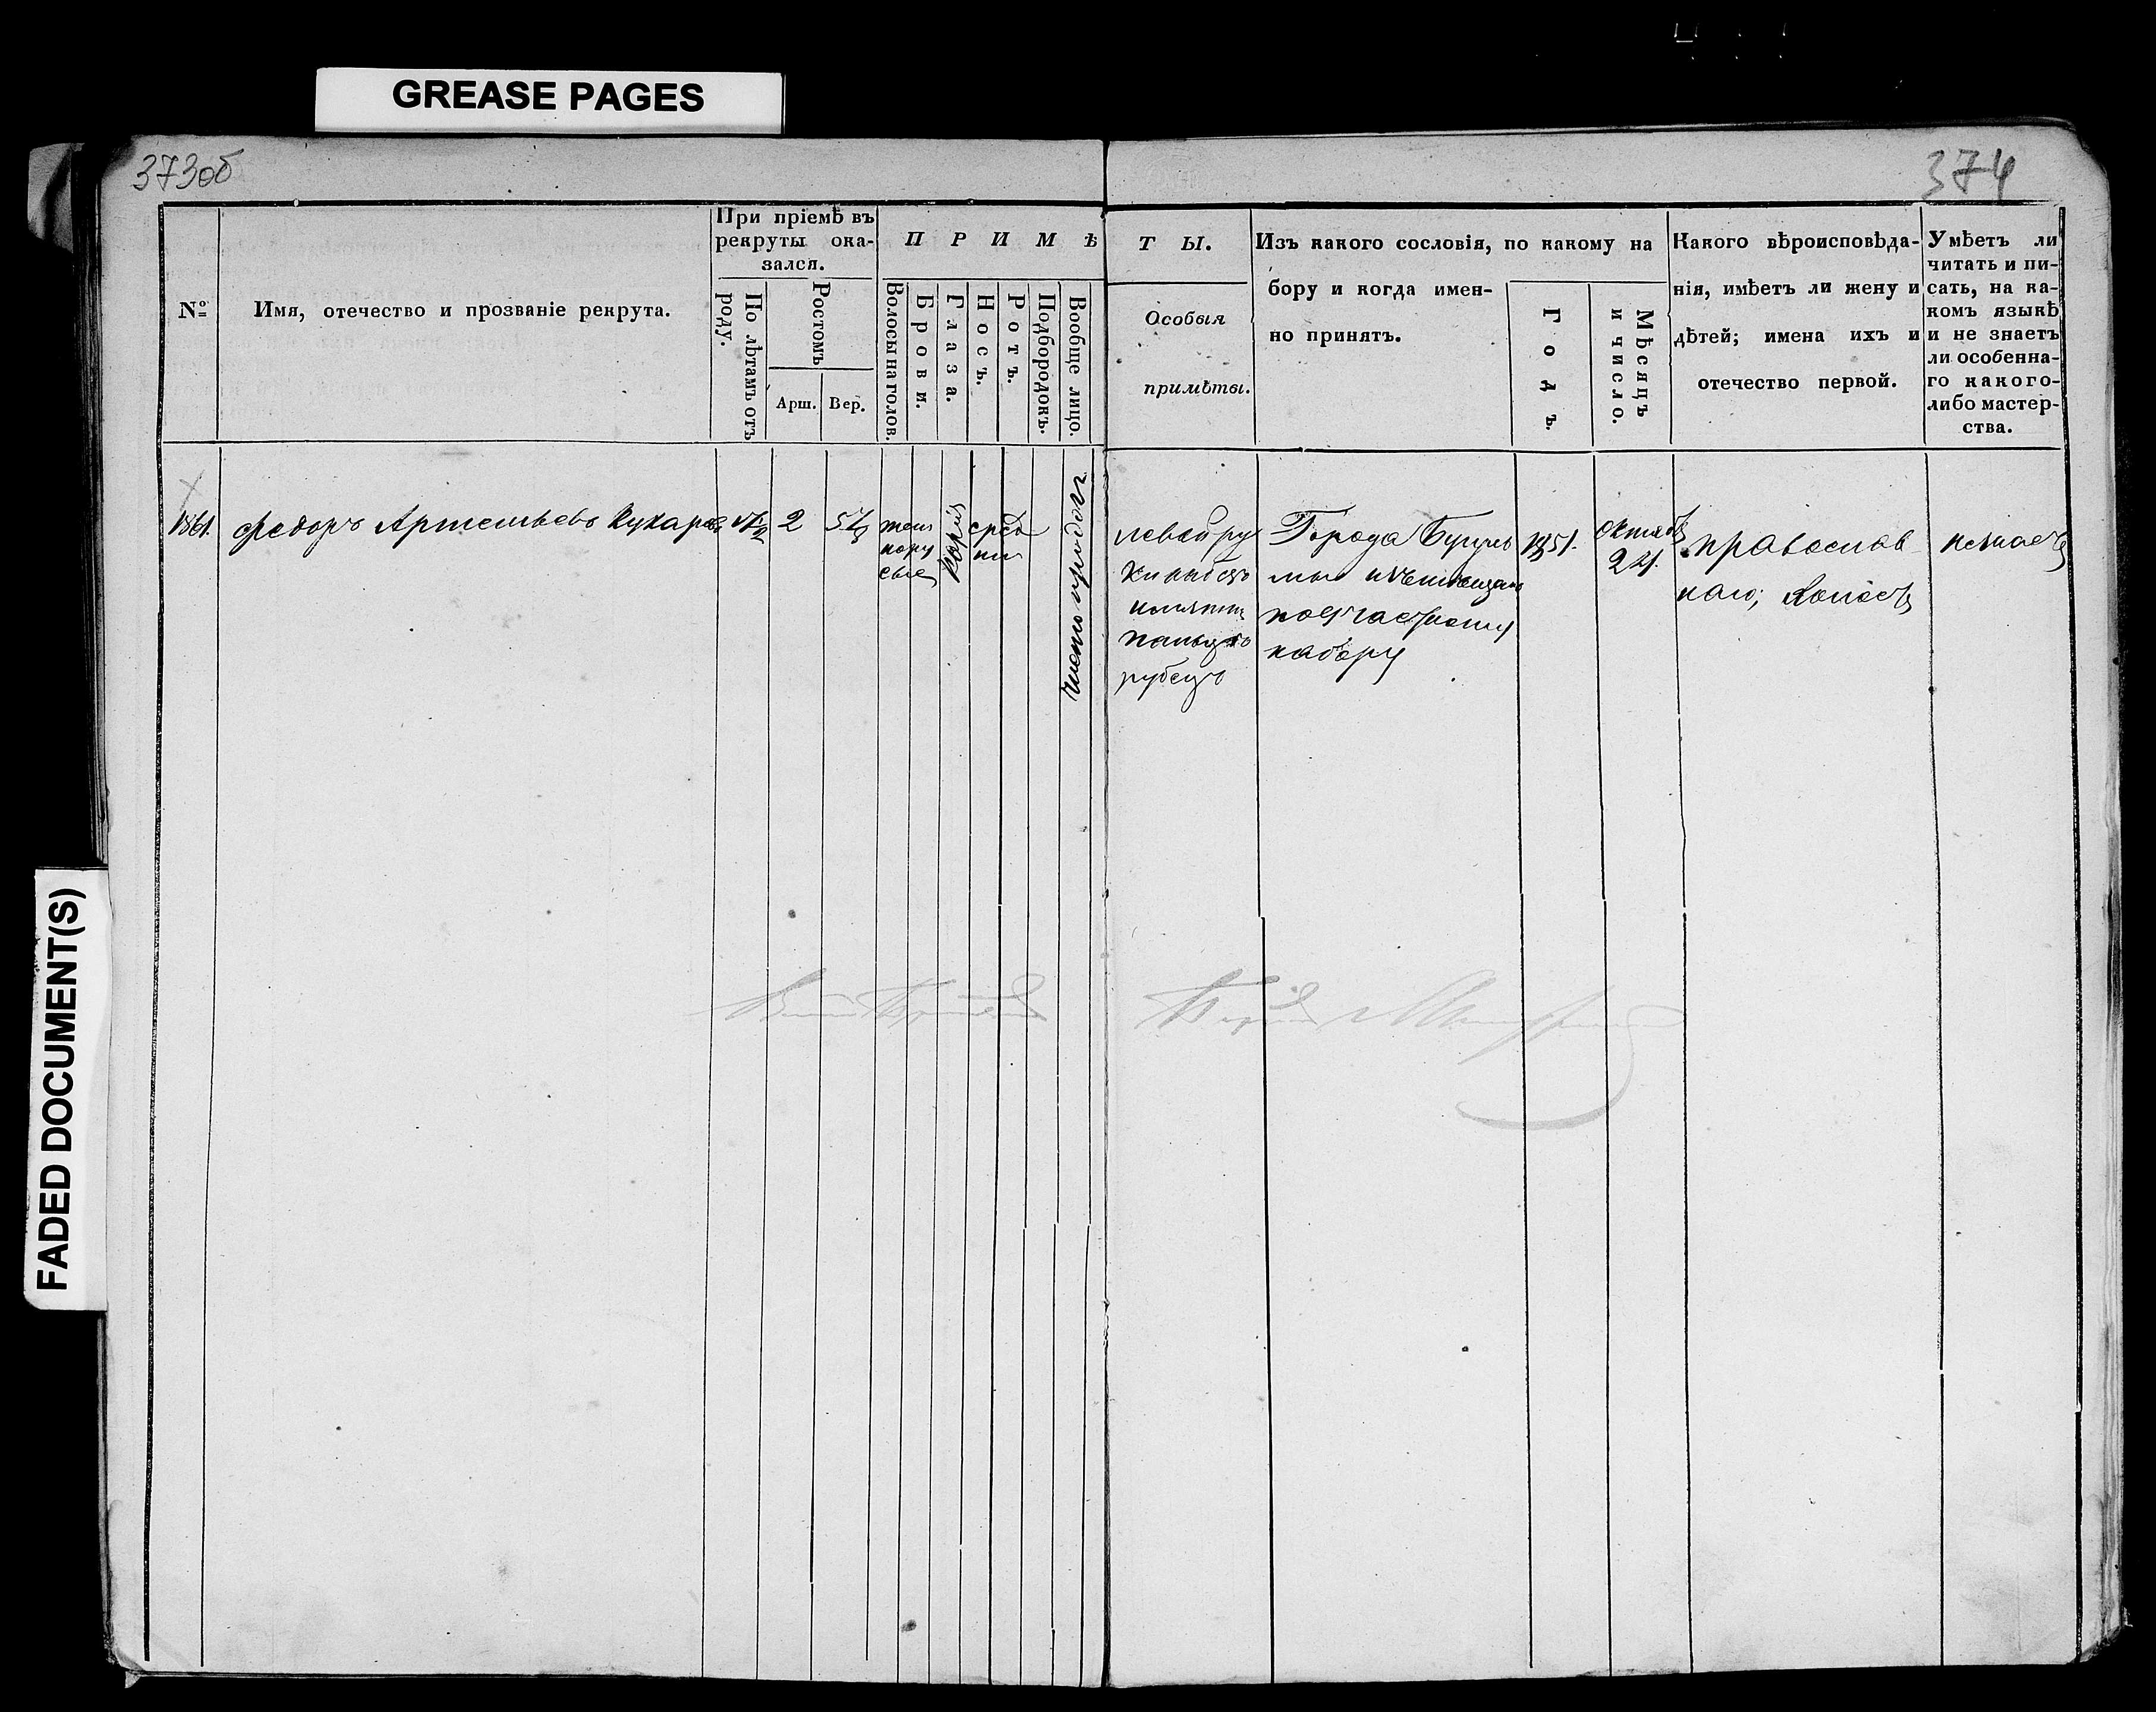 GREASE PAGES
373об
374
№
Имя, отчество и прозваніе рекрута.
При пріемѣ въ
рекруты ока-
зался.
По лѣтамъ отъ
роду.
Ростомъ
Арш.
Вер.
ПРИМѢ
Волосы на голов.
Брови.
Глаза.
Носъ.
Ротъ.
Подбородокъ.
Вообще лицо.
ТЫ.
Особыя
примѣты.
Изъ какого сословія, по какому на
бору и когда имен-
но принятъ.
Годъ.
Мѣсяцъ
и число.
Какого вѣроисповѣда-
нія, имѣетъ ли жену и
дѣтей; имена ихъ и
отечество первой.
Умѣетъ ли
читать и пи-
сать, на ка-
комъ языкѣ
и не знаетъ
ли особенна-
го какого-
либо мастер-
ства.
1861.
Федоръ Артемьевъ Кухарев
2
темн
нору
сые
карія
сред
ни
чисто
левой ру
ки
рубецъ
Города Бугуль
мы
набору
1851.
Октяб
21.
православ
наго; холостъ
незнаетъ
FADED DOCUMENT(S)